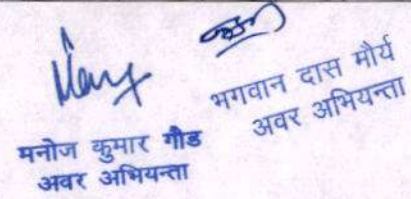 मनोज कुमार गौड
अवर अभियन्ता
भगवान दास मौर्य
अवर अभियन्ता